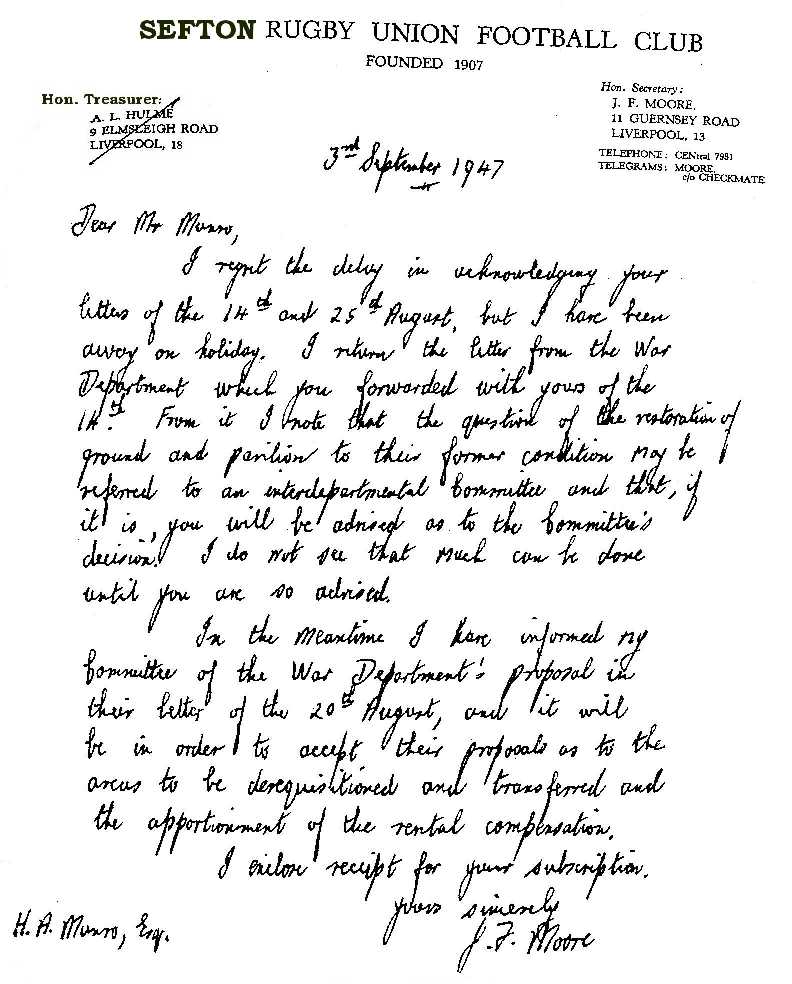 SEFTON RUGBY UNION FOOTBALL CLUB
FOUNDED 1907
Hon. Treasurer:
A. L. HULME
9 ELMSLEIGH ROAD
LIVERPOOL, 18
Hon. Secretary:
J. F. MOORE,
11 GUERNSEY ROAD
LIVERPOOL, 13
TELEPHONE: CENtral 7981
TELEGRAMS: MOORE,
c/o CHECKMATE
3rd September 1947
Dear Mr Munro,
I regret the delay in acknowledging your
letters of the 14th and 25th August, but I have been
away on holiday. I return the letter from the War
Department which you forwarded with yours of the
14th. From it I note that the question of the restoration of
ground and pavilion to their former condition may be
referred to an interdepartmental Committee and that, if
it is, you will be advised as to the Committee's
decision. I do not see that much can be done
until you are so advised.
In the meantime I have informed my
Committee of the War Department's proposal in
their letter of the 20th August, and it will
be in order to accept their proposals as to the
areas to be derequisitioned and transferred and
the apportionment of the rental compensation.
I enclose receipt for your subscription.
Yours sincerely
J. F. Moore
H. A. Munro, Esq.